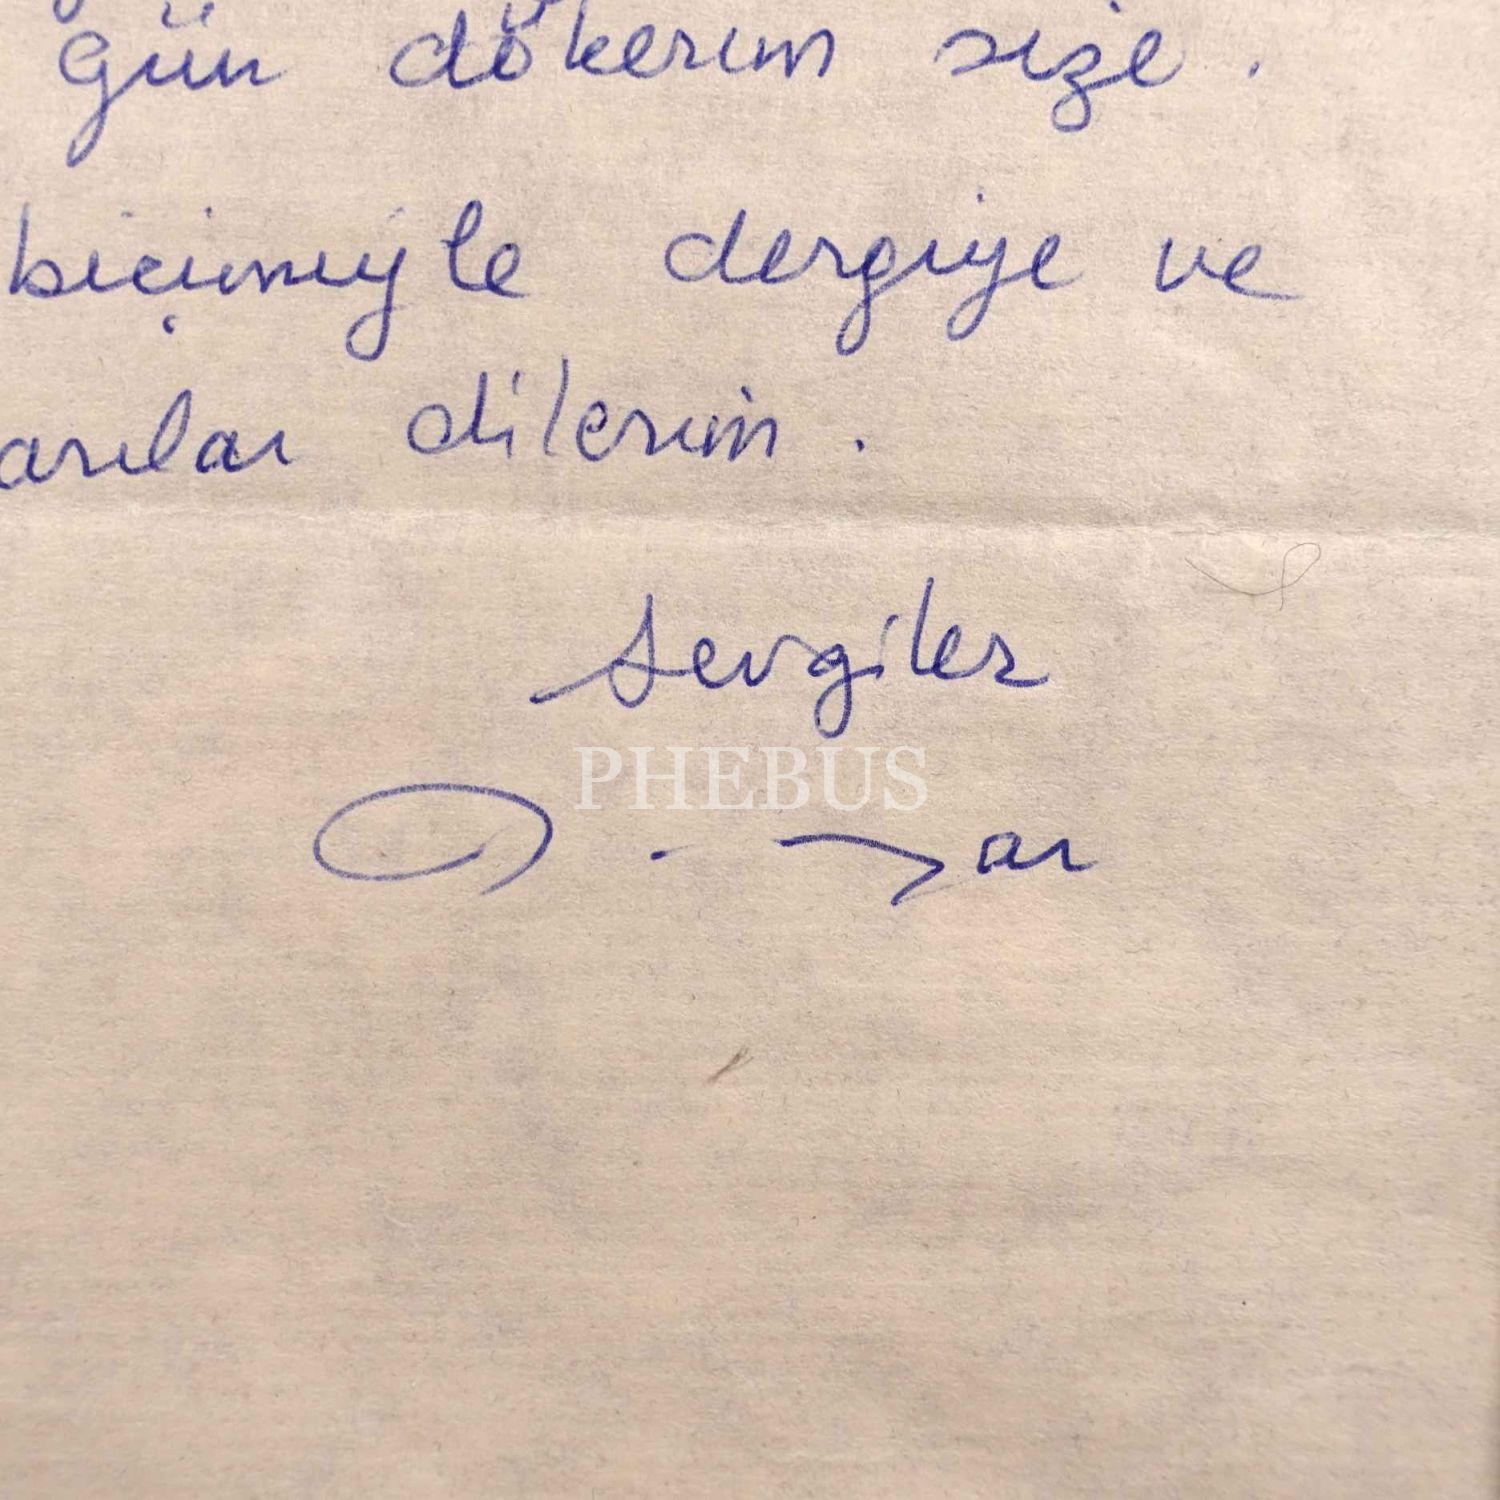 gün dökerim size.
biçimiyle dergiye ve
arılar dilerim.
Sevgiler
PHEBUS